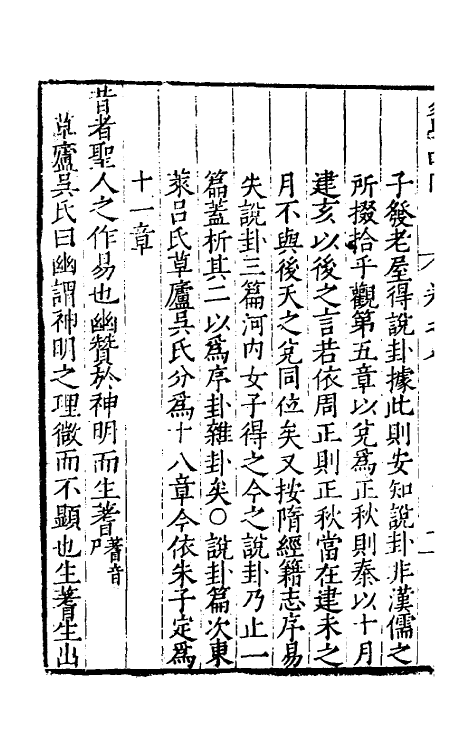 子發老屋得說卦據此則安知說卦非漢儒之
所掇拾乎觀第五章以兌爲正秋則秦以十月
建亥以後之言若依周正則正秋當在建未之
月不與後天之兌同位矣又按隋經籍志序易
失說卦三篇河內女子得之今之說卦乃止一
篇蓋析其二以爲序卦雜卦矣○說卦篇次東
萊呂氏草廬吳氏分爲十八章今依朱子定爲
十一章
昔者聖人之作易也幽贊於神明而生蓍蓍音尸
草廬吳氏曰幽謂神明之理微而不顯也生蓍生出